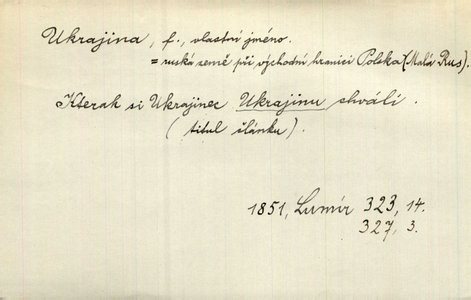 Ukrajina, f., vlastní jméno.
= ruská země při východní hranici Polska (Malá Rus).
Kterak si Ukrajinec Ukrajinu chválí.
(titul článku).
1851, Lumír 323, 14.
327, 3.